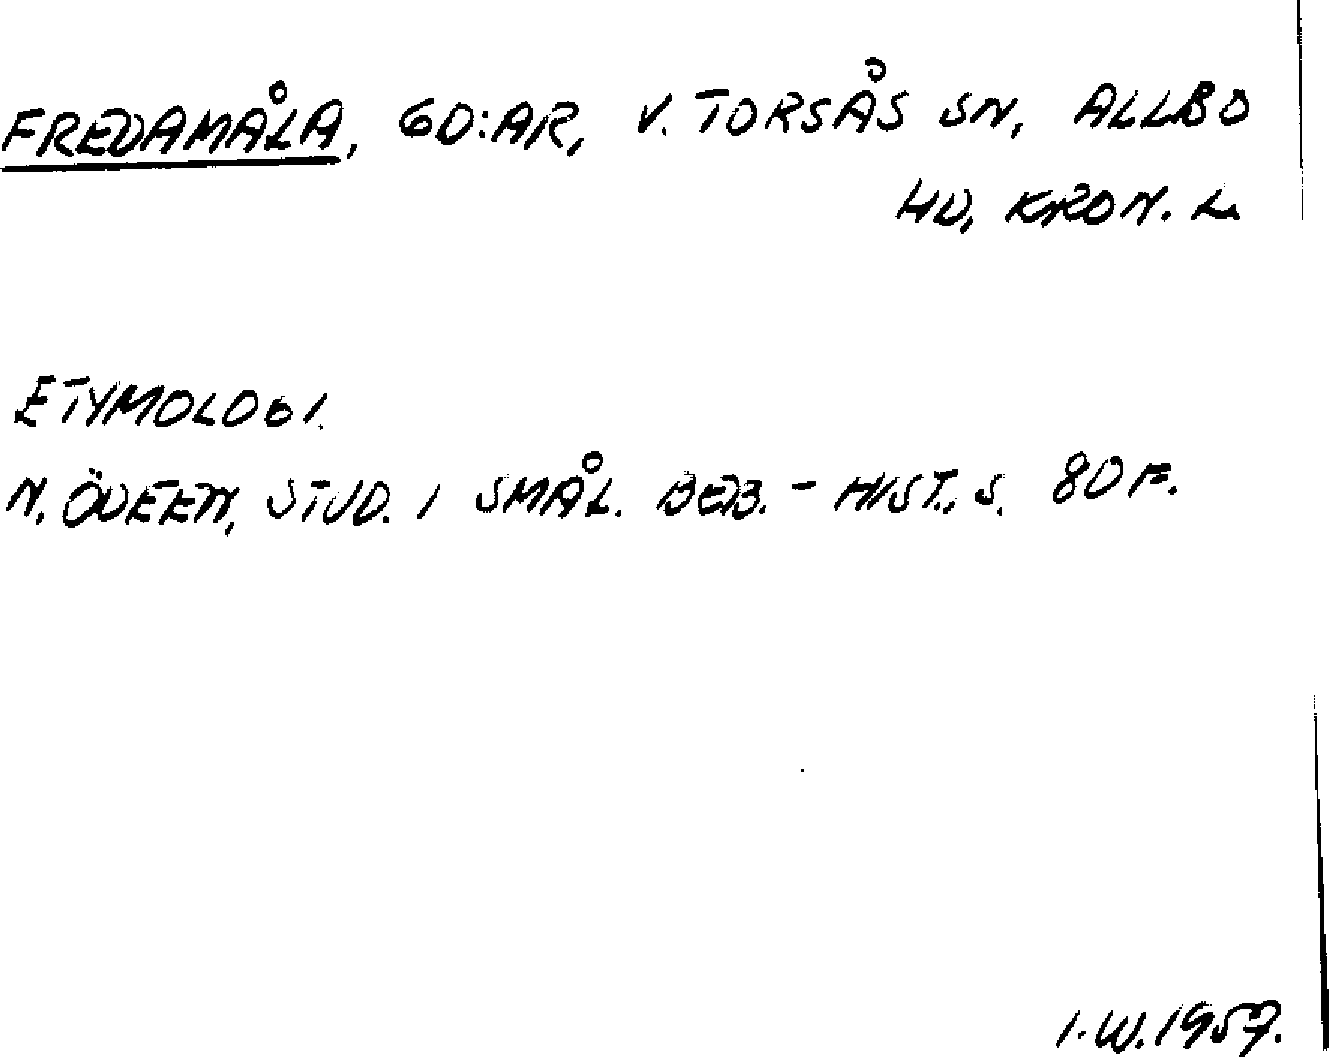 FREDAMÅLA, GD:AR, V. TORSÅS SN, ALLBO
HD, KRON. L.
ETYMOLOGI.
N. ÖDEEN, STUD. I SMÅL. BEB. - HIST., S. 80 F.
I.W. 1957.